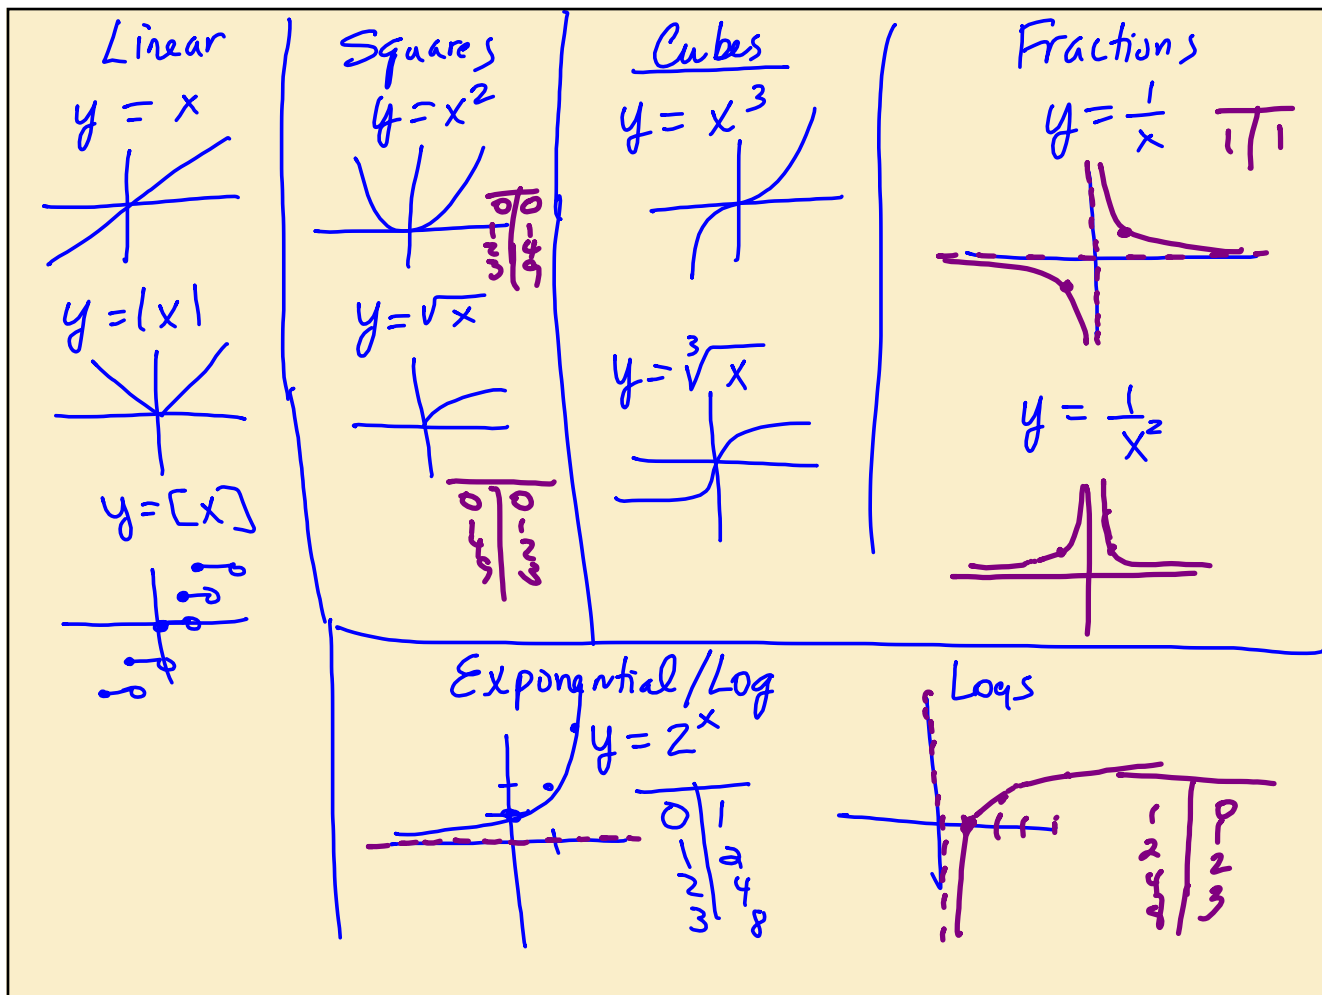 Linear
y = x
y = |x|
y = [x]
Squares
y = x²
0 0
1 1
2 4
3 9
y = √x
0 0
1 1
4 2
9 3
Cubes
y = x³
y = ³√x
Fractions
y = 1/x
1 1
y = 1/x²
Exponential/Log
y = 2ˣ
0 1
1 2
2 4
3 8
Logs
1 0
2 1
4 2
8 3